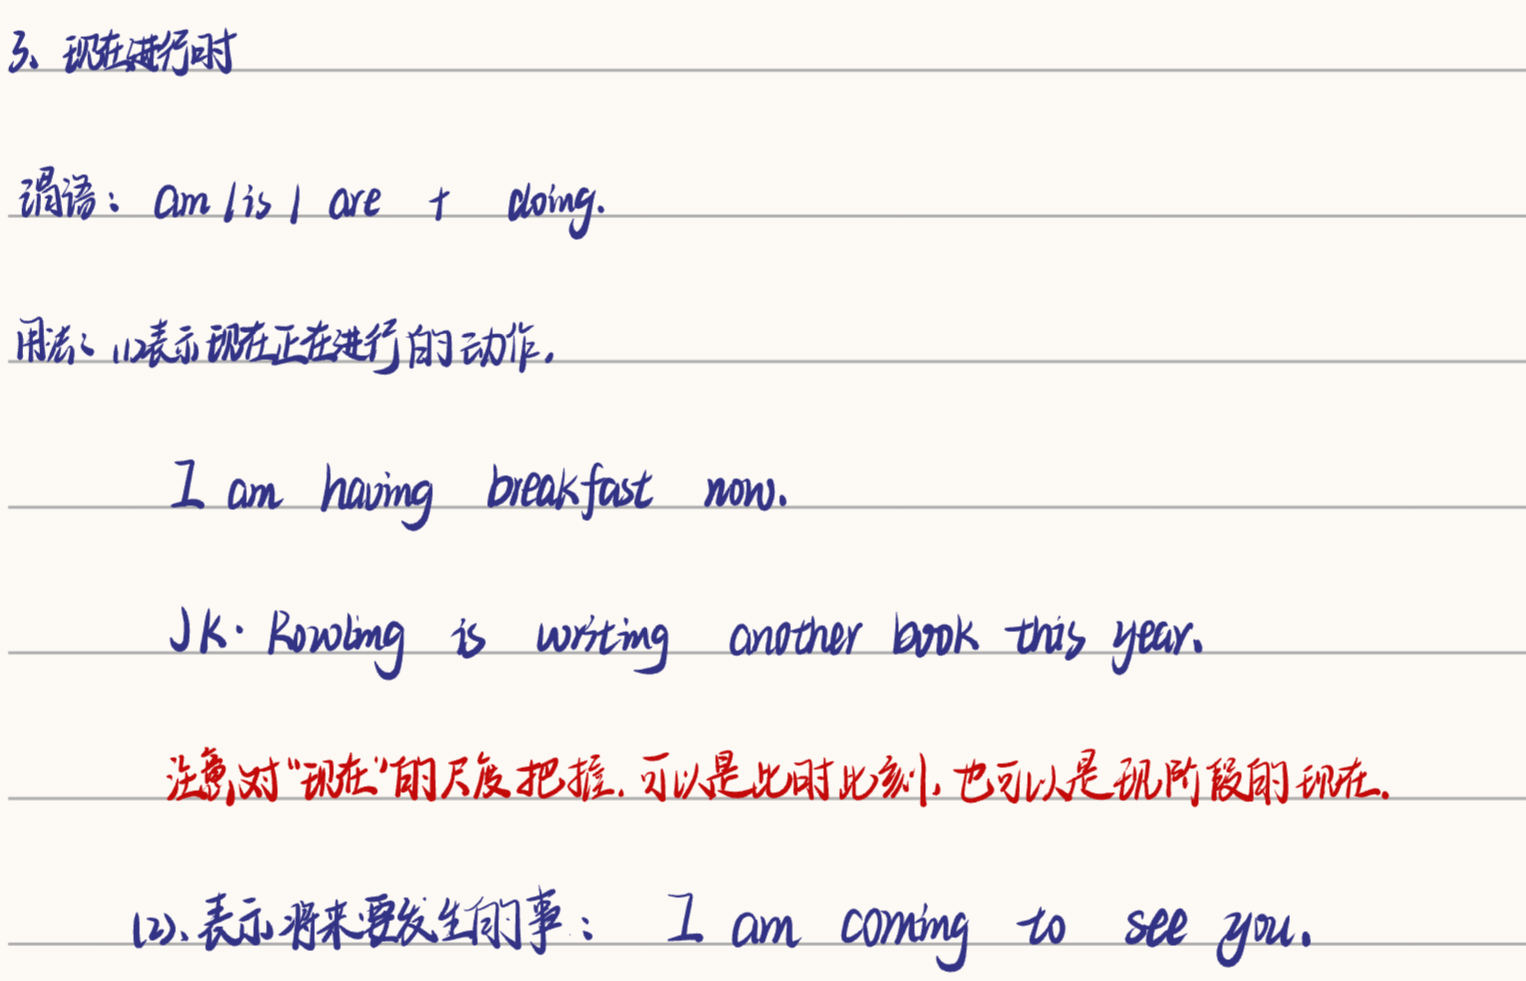 3、现在进行时
谓语：am / is / are + doing.
用法：(1)表示现在正在进行的动作.
I am having breakfast now.
JK. Rowling is writing another book this year.
注意对“现在”的尺度把握.可以是此时此刻,也可以是现阶段的现在.
(2)、表示将来要发生的事：I am coming to see you.